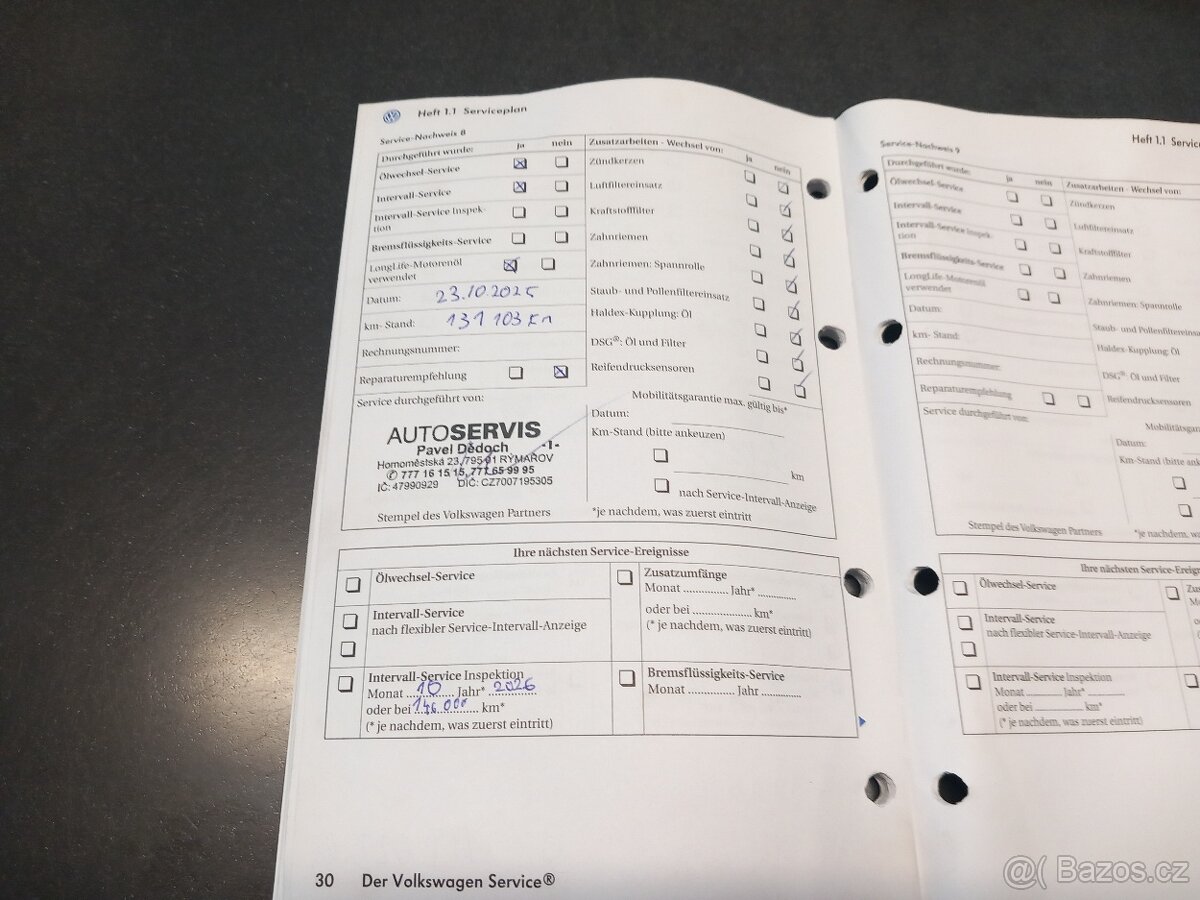 Heft 1.1 Serviceplan
Service-Nachweis 8
Durchgeführt wurde: ja nein
Ölwechsel-Service
Intervall-Service
Intervall-Service Inspek-
tion
Bremsflüssigkeits-Service
LongLife-Motorenöl
verwendet
Datum: 23.10.2025
km- Stand: 131 103 Km
Rechnungsnummer:
Reparaturempfehlung
Service durchgeführt von:
AUTOSERVIS
Pavel Dědoch -1-
Horní 23, 795 01 RÝMAŘOV
✆ 777 16 15 15, 777 65 99 95
IČ: 47990929 DIČ: CZ7007195305
Stempel des Volkswagen Partners
Zusatzarbeiten - Wechsel von: ja nein
Zündkerzen
Luftfiltereinsatz
Kraftstofffilter
Zahnriemen
Zahnriemen: Spannrolle
Staub- und Pollenfiltereinsatz
Haldex-Kupplung: Öl
DSG®: Öl und Filter
Reifendrucksensoren
Mobilitätsgarantie max. gültig bis*
Datum:
Km-Stand (bitte ankeuzen)
km
nach Service-Intervall-Anzeige
*je nachdem, was zuerst eintritt
Ihre nächsten Service-Ereignisse
Ölwechsel-Service
Intervall-Service
nach flexibler Service-Intervall-Anzeige
Intervall-Service Inspektion
Monat 10 Jahr* 2026
oder bei 146 000 km*
(* je nachdem, was zuerst eintritt)
Zusatzumfänge
Monat .............. Jahr* ............
oder bei .................. km*
(* je nachdem, was zuerst eintritt)
Bremsflüssigkeits-Service
Monat ............ Jahr ............
30 Der Volkswagen Service®
Heft 1.1 Service
Service-Nachweis 9
Durchgeführt wurde: ja nein
Ölwechsel-Service
Intervall-Service
Intervall-Service Inspek-
tion
Bremsflüssigkeits-Service
LongLife-Motorenöl
verwendet
Datum:
km- Stand:
Rechnungsnummer:
Reparaturempfehlung
Service durchgeführt von:
Stempel des Volkswagen Partners
Zusatzarbeiten - Wechsel von:
Zündkerzen
Luftfiltereinsatz
Kraftstofffilter
Zahnriemen
Zahnriemen: Spannrolle
Staub- und Pollenfiltereinsa
Haldex-Kupplung: Öl
DSG®: Öl und Filter
Reifendrucksensoren
Mobilitätsgaran
Datum:
Km-Stand (bitte ank
nach Ser
*je nachdem, wa
Ihre nächsten Service-Ereign
Ölwechsel-Service
Intervall-Service
nach flexibler Service-Intervall-Anzeige
Intervall-Service Inspektion
Monat ............ Jahr* ............
oder bei .................. km*
(* je nachdem, was zuerst eintritt)
Zus
Mo
@( Bazos.cz